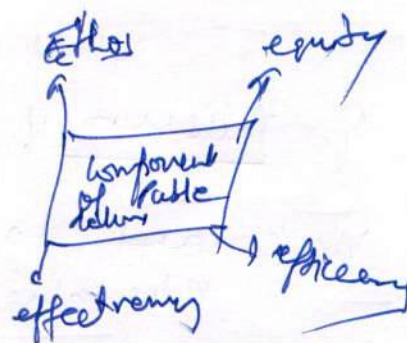 Ethos
equity
component
of Public
efficiency
effectiveness